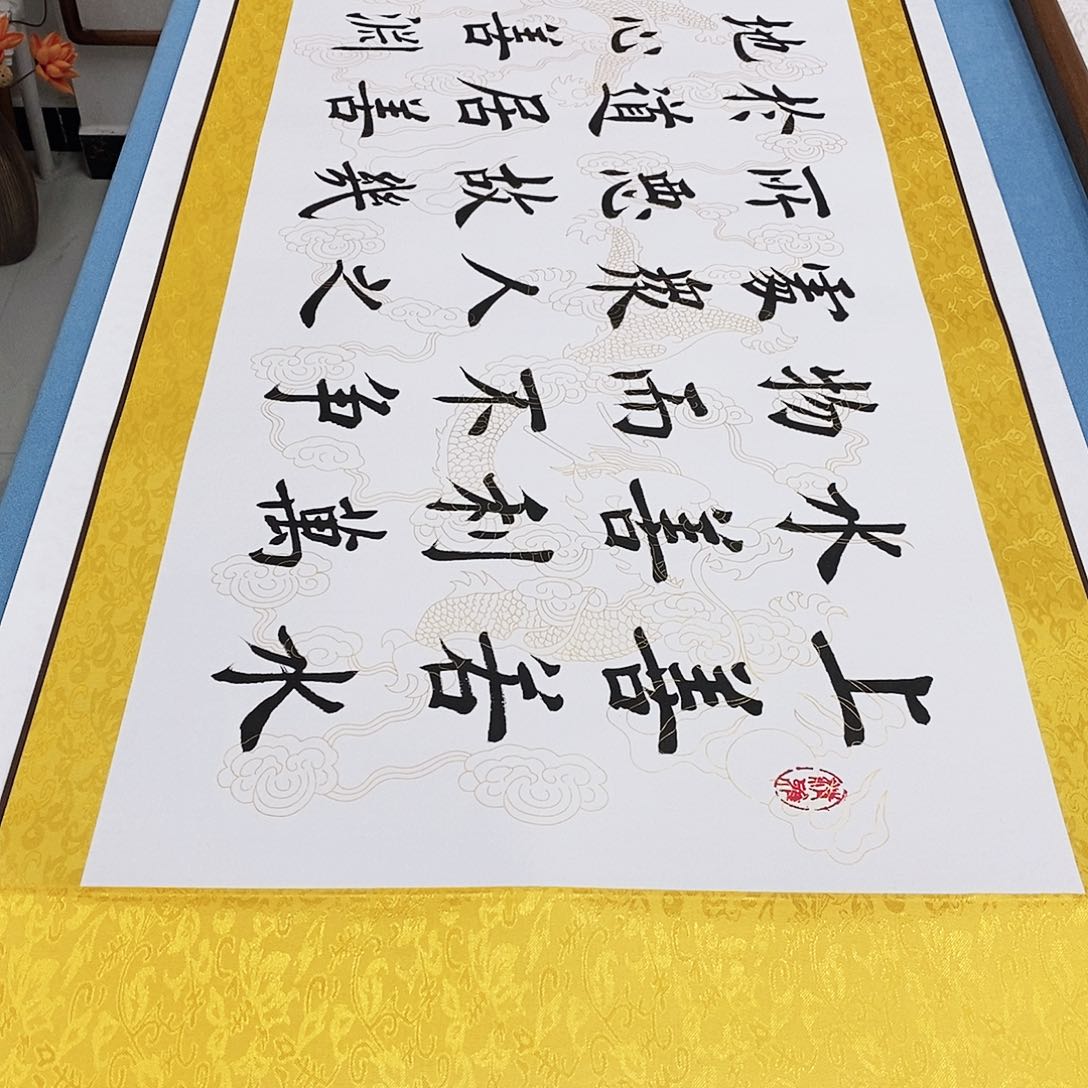 上善若水
水善利萬
物而不争
處衆人之
所惡故幾
於道居善
地心善淵